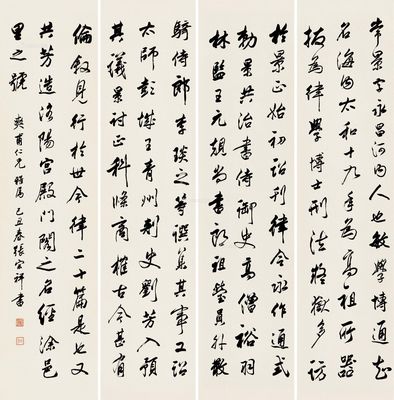 常景字永昌河内人也敏學博通知
名海内太和十九年為高祖所器
拔為律學博士刑法疑獄多訪
於景正始初詔刊律令永作通式
勅景共治書侍御史高僧裕羽
林監王元龜尚書郎祖瑩員外散
騎侍郎李琰之等譔集其事又詔
太師彭城王青州刺史劉芳入預
其議景討正科條商榷古今甚有
倫敘見行於世今律二十篇是也又
共芳造洛陽宮殿門閣之名經涂邑
里之號 甫仁兄雅屬 己丑春張宗祥書